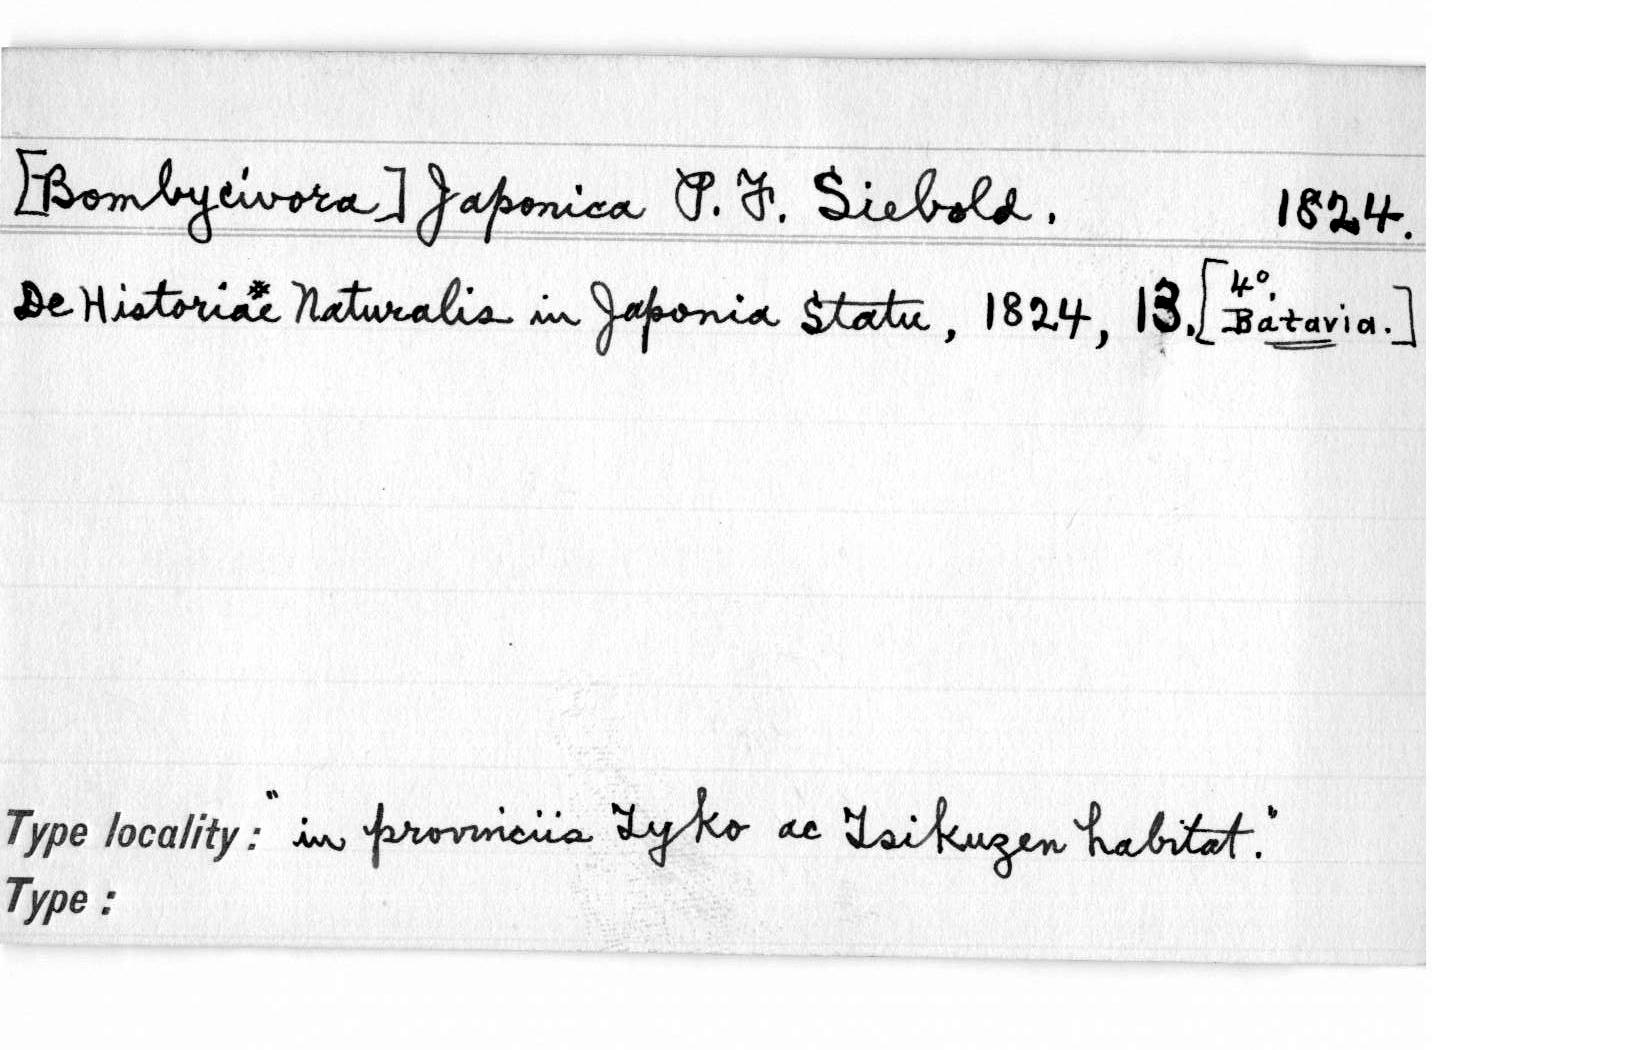 [Bombycivora] Japonica P. F. Siebold. 1824.
De Historiae* Naturalis in Japonia Statu, 1824, 13. [4º. Batavia.]
Type locality: "in provinciis Zyko ac Tsikuzen habitat."
Type: